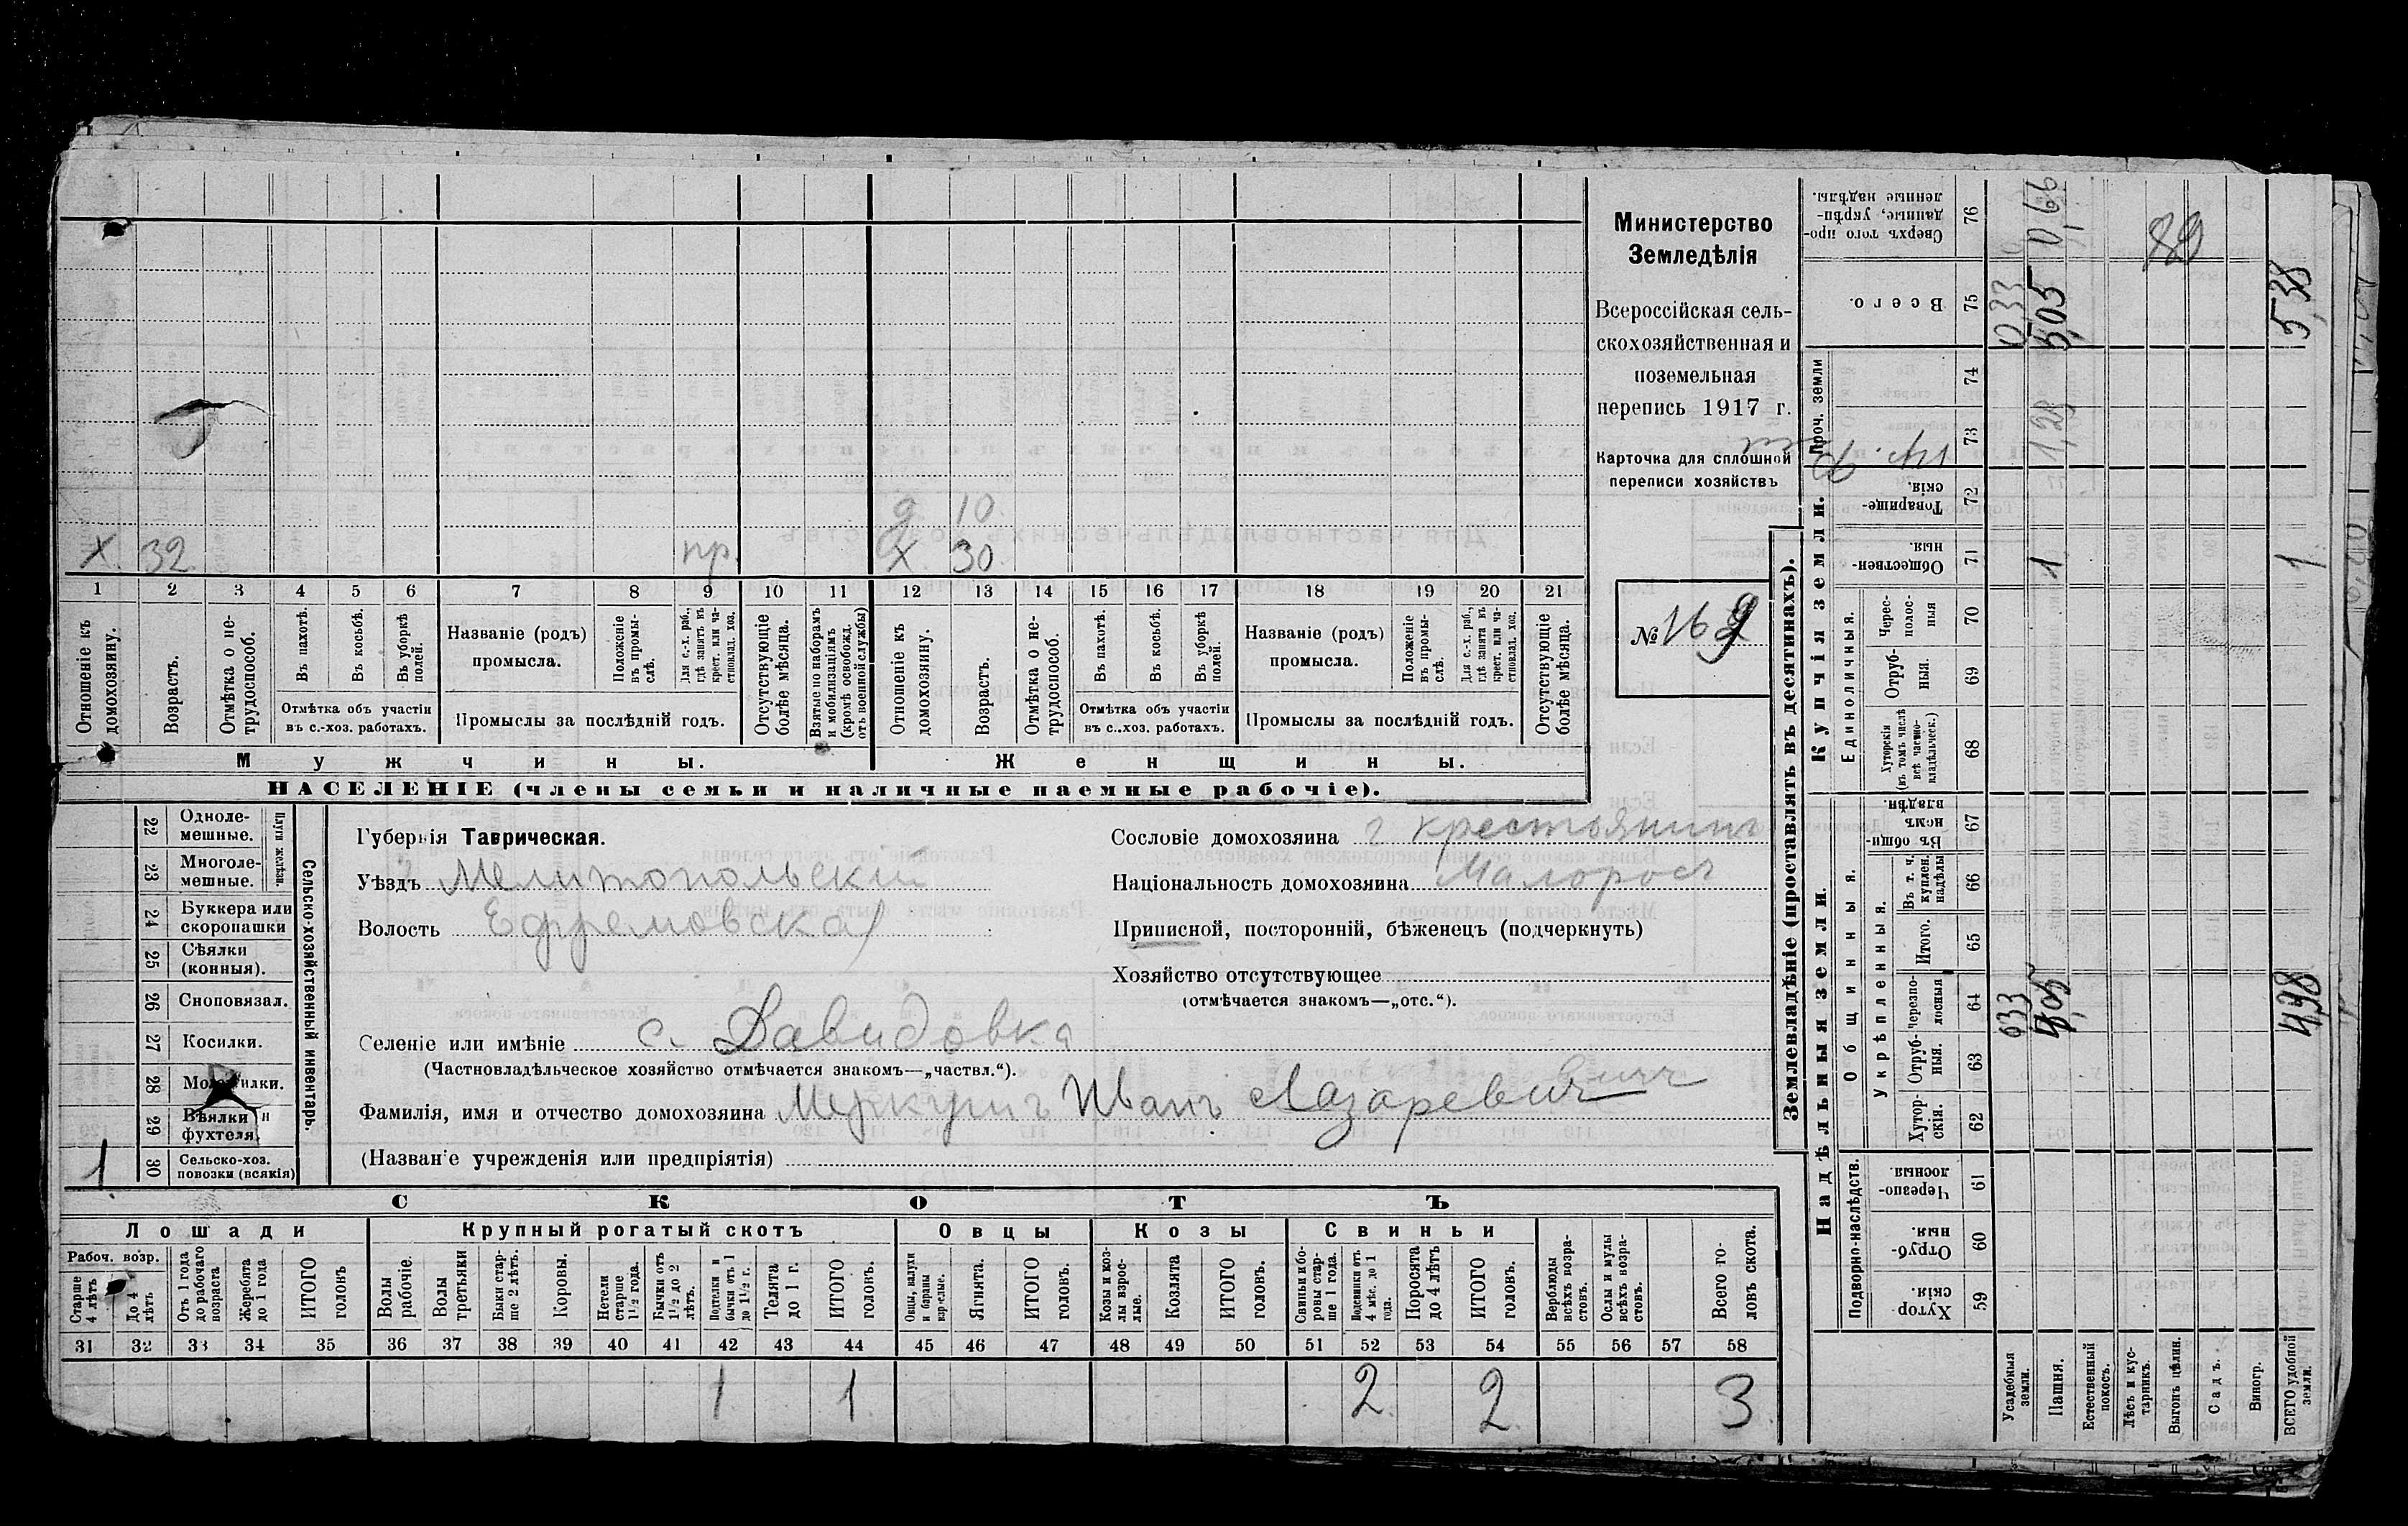 Министерство
Земледѣлія
Всероссійская сель-
скохозяйственная и
поземельная
перепись 1917 г.
Карточка для сплошной
переписи хозяйствъ
№ 169
д 10
х 32 пр. х 30
1 2 3 4 5 6 7 8 9 10 11 12 13 14 15 16 17 18 19 20 21
Отношеніе къ домохозяину.
Возрастъ.
Отмѣтка о не-трудоспособ.
Въ пахотѣ.
Въ косьбѣ.
Въ уборкѣ полей.
Отмѣтка объ участіи
въ с.-хоз. работахъ.
Названіе (родъ)
промысла.
Положеніе въ промы-слѣ.
Для с.-х. раб., гдѣ занятъ въ крест. или ча-стновлад. хоз.
Промыслы за послѣдній годъ.
Отсутствующіе болѣе мѣсяца.
Взятые по наборамъ и мобилизаціямъ (кромѣ освобожд. отъ военной службы)
Отношеніе къ домохозяину.
Возрастъ.
Отмѣтка о не-трудоспособ.
Въ пахотѣ.
Въ косьбѣ.
Въ уборкѣ полей.
Отмѣтка объ участіи
въ с.-хоз. работахъ.
Названіе (родъ)
промысла.
Положеніе въ промы-слѣ.
Для с.-х. раб., гдѣ занята въ крест. или ча-стновлад. хоз.
Промыслы за послѣдній годъ.
Отсутствующіе болѣе мѣсяца.
Мужчины. Женщины.
НАСЕЛЕНІЕ (члены семьи и наличные наемные рабочіе).
22 Одноле-мешные.
23 Многоле-мешные.
Плуги желѣзн.
24 Буккера или скоропашки
25 Сѣялки (конныя).
26 Сноповязал.
27 Косилки.
28 Молотилки.
29 Вѣялки и фухтеля.
1 30 Сельско-хоз. повозки (всякія)
Сельско-хозяйственный инвентарь.
Губернія Таврическая.
Уѣздъ Мелитопольскій
Волость Ефремовская
Селеніе или имѣніе с. Давидовка
(Частновладѣльческое хозяйство отмѣчается знакомъ—„частвл.“).
Фамилія, имя и отчество домохозяина Иванъ Лазаревичъ
(Названіе учрежденія или предпріятія)
Сословіе домохозяина крестьянинъ
Національность домохозяина Малоросъ
Приписной, посторонній, бѣженецъ (подчеркнуть)
Хозяйство отсутствующее
(отмѣчается знакомъ—„отс.“).
СКОТЪ
Лошади Крупный рогатый скотъ Овцы Козы Свиньи
Рабоч. возр.
Старше 4 лѣтъ
До 4 лѣтъ
Отъ 1 года до рабочаго возраста
Жеребята до 1 года
ИТОГО головъ
Волы рабочіе.
Волы третьяки
Быки стар-ше 2 лѣтъ.
Коровы.
Нетели старше 1½ года.
Бычки отъ 1½ до 2 лѣтъ.
Подтелки и бычки отъ 1 до 1½ г.
Телята до 1 г.
ИТОГО головъ.
Овцы, валухи и бараны взрослые.
Ягнята.
ИТОГО головъ.
Козы и коз-лы взрос-лые.
Козлята
ИТОГО головъ.
Свиньи и бо-ровы стар-ше 1 года.
Подсвинки отъ 4 мѣс. до 1 года.
Поросята до 4 лѣтъ
ИТОГО головъ.
Верблюды всѣхъ возра-стовъ.
Ослы и мулы всѣхъ возра-стовъ.
Всего го-ловъ скота.
31 32 33 34 35 36 37 38 39 40 41 42 43 44 45 46 47 48 49 50 51 52 53 54 55 56 57 58
1 1 2 2 3
Землевладѣніе (проставлять въ десятинахъ).
Надѣльныя земли. Купчія земли. Проч. земли
Подворно-наслѣдств. Общинныя. Укрѣпленныя. Единоличныя.
Сверхъ того про-данные, укрѣп-ленные надѣлы. 76
Всего. 75
74
73
Товарище-скія. 72
Обществен-ныя. 71
Черес-полос-ныя 70
Отруб-ныя. 69
Хуторскія (въ томъ числѣ всѣ частно-владѣльческ.) 68
Въ общи-номъ владѣн. 67
Въ т. ч. куплен. надѣлы 66
Итого. 65
Черезпо-лосныя 64
Отруб-ныя. 63
Хутор-скія. 62
Черезпо-лосныя 61
Отруб-ныя. 60
Хутор-скія. 59
Усадебныя земли. 0,33 0,33
Пашня. 1 1,28 5,05 0,66
Естественный покосъ.
Лѣсъ и кус-тарникъ.
Выгонъ цѣлин.
Садъ.
Виногр.
ВСЕГО удобной земли. 4,38 1 5,38
89